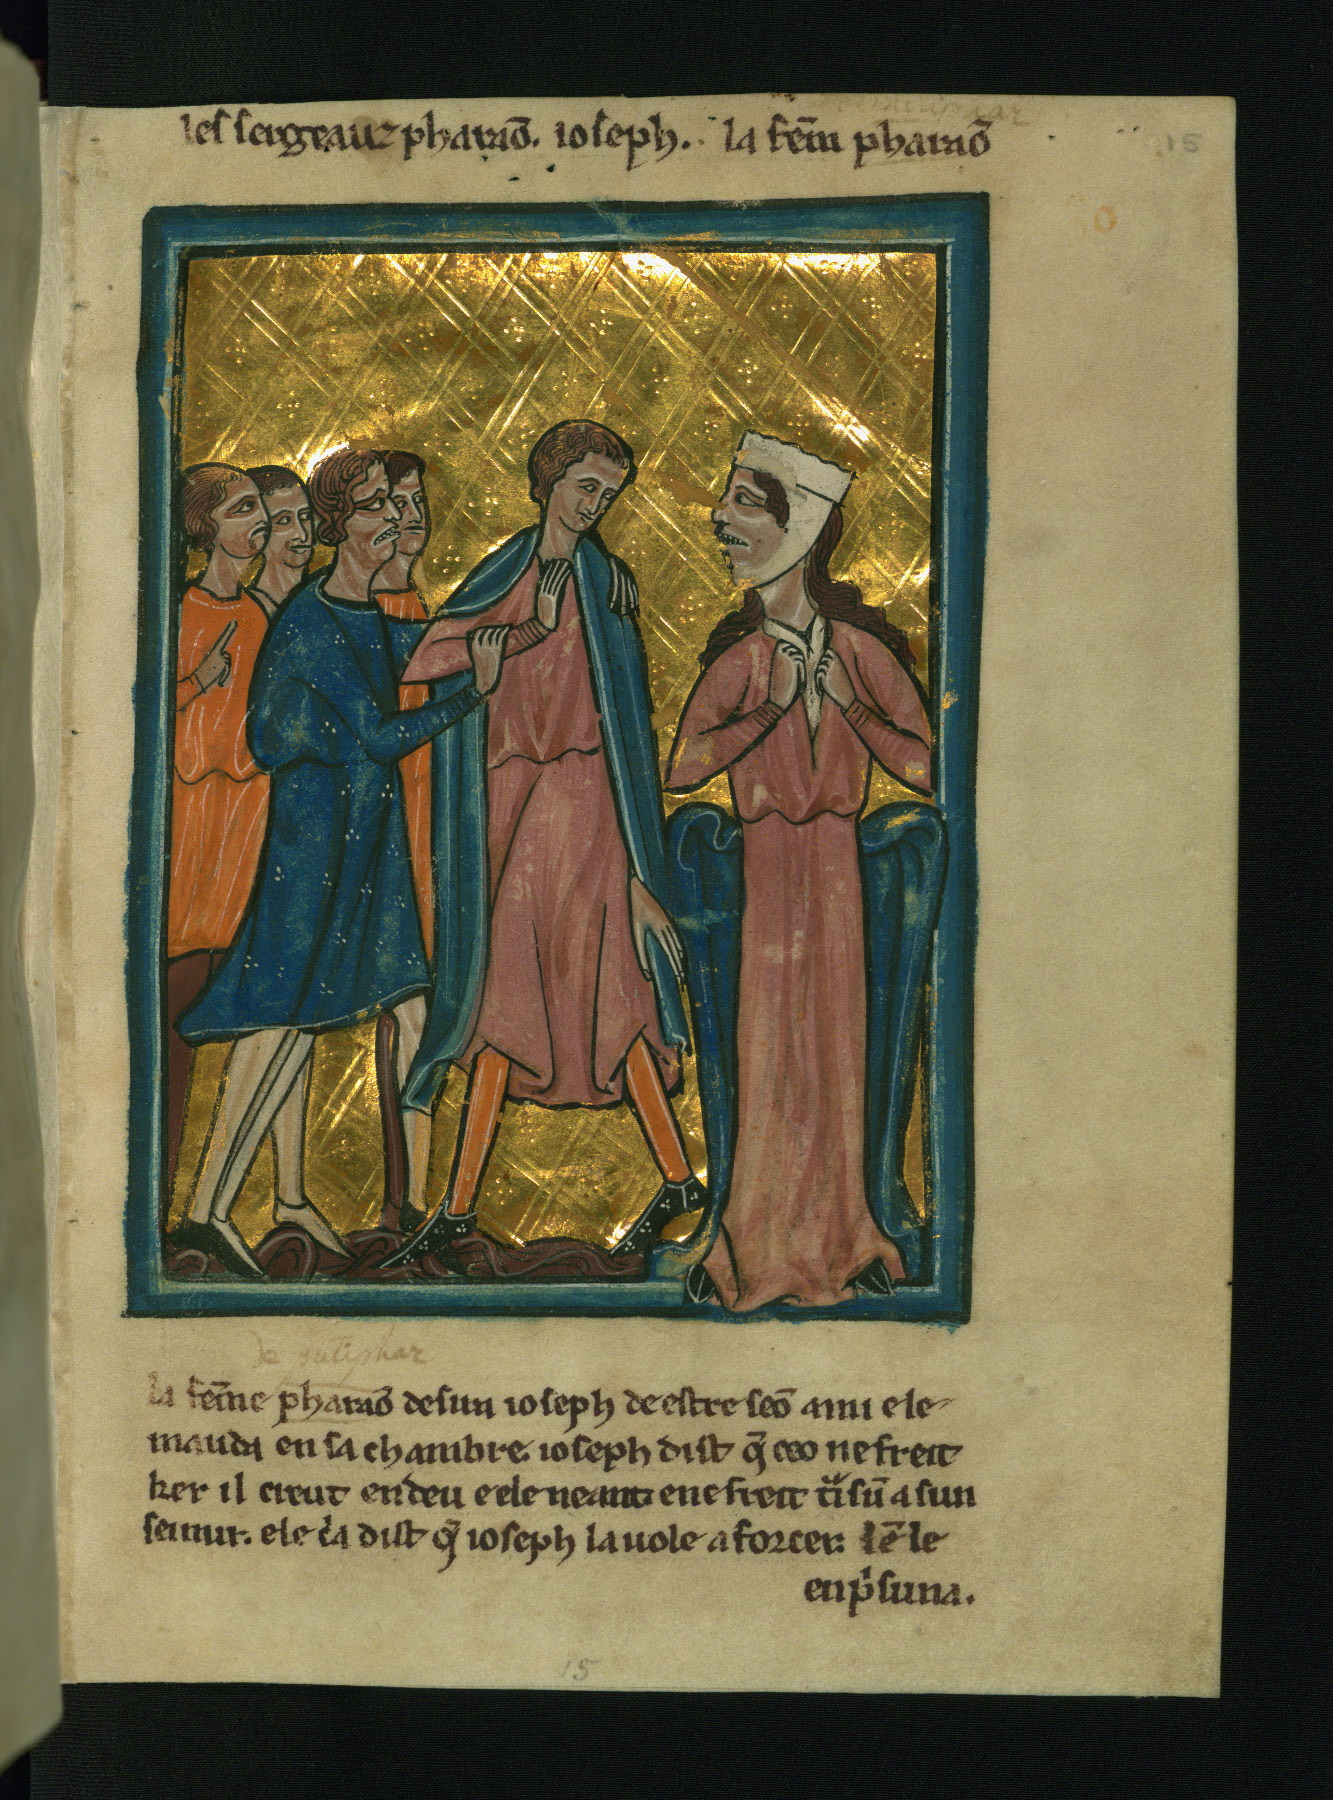 les sergeauz pharaō. ioseph. la fēm pharaō
15
de putiphar
la fēme pharaō desun ioseph de estre seō ami e le
mauda en sa chambre. ioseph dist q̄ ceo ne freit
ker il creut en deu e ele neant e ne freit t̄isū a sun
seinur. ele cria dist q̄ ioseph la uole a forcer. lē le
en p̄suna.
15